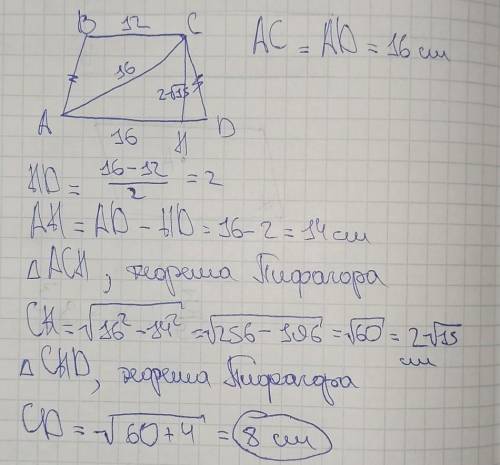 B 12 C
AC = AD = 16 см
16
2√15
A 16 H D
HD = (16-12)/2 = 2
AH = AD - HD = 16-2 = 14 см
△ ACH, теорема Пифагора
CH = √(16² - 14²) = √(256 - 196) = √60 = 2√15 см
△ CHD, теорема Пифагора
CD = √(60+4) = 8 см